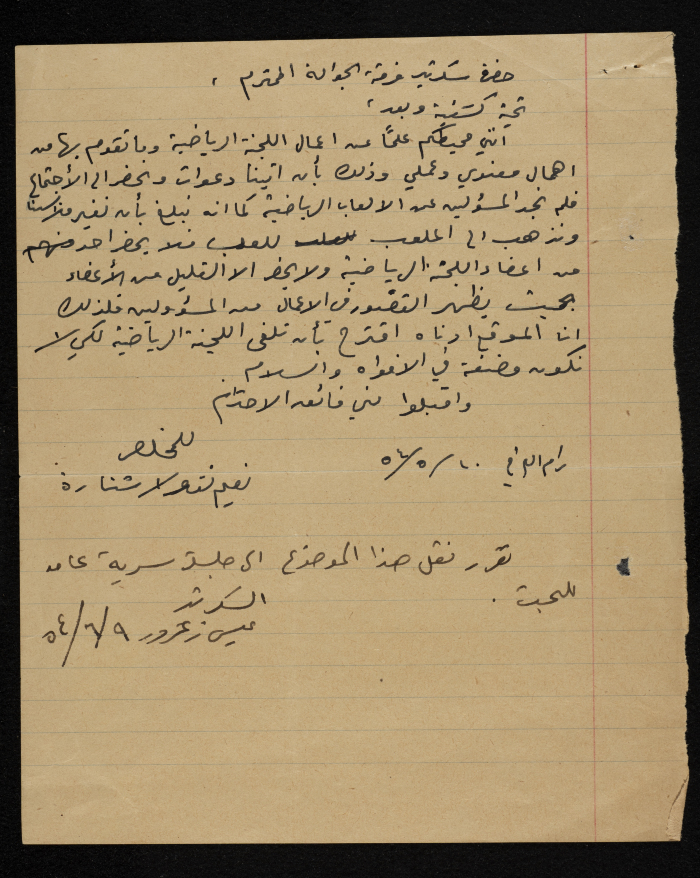 حضرة سكرتير فرقة الجوالة المحترم ،
تحية كشفية وبعد ،
انني محيطكم علمًا عن اعمال اللجنة الرياضية وما تقوم بها من
اهمال معنوي وعملي وذلك بأن اتينا دعوات ونحضر الى الأجتماع
فلم نجد المسؤولين عن الالعاب الرياضية كما انه نبلغ بأن نغير ملابسنا
ونذهب الى الملعب للعب فلا يحضر احد منهم
من اعضاء اللجنة الرياضية ولا يحضر الا القليل من الأعضاء
بحيث يظهر القصور في الاعمال من المسؤولين فلذلك
انا الموقع ادناه اقترح بأن تلغى اللجنة الرياضية لكي لا
نكون مضغة في الافواه والسلام
واقبلوا مني فائق الاحترام
رام الله في ١٠/٥/٥٤
المخلص
نعيم نقولا شنارة
تقرر نقل هذا الموضوع الى جلسة سرية عامة
للبحث .
السكرتير
عيسى زعرور ٩/٦/٥٤